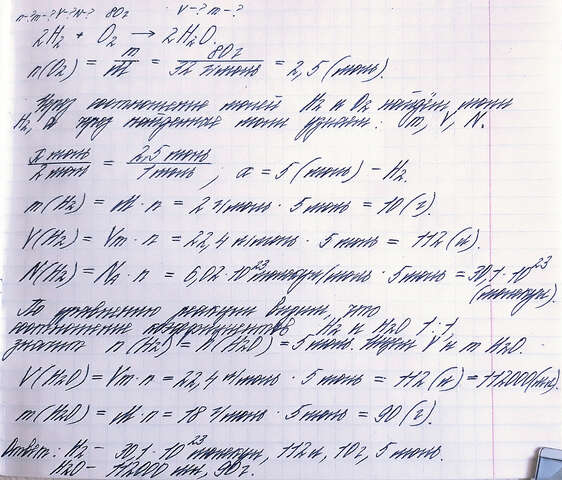 n-? m-? V-? N-? 80г V-? m-?
2H₂ + O₂ → 2H₂O.
n(O₂) = m/M = 80г/32 г/моль = 2,5 (моль).
Через соотношение молей H₂ и O₂ найдём моли
H₂, а через найденные моли узнаем: m, V, N.
x моль/2 моль = 2,5 моль/1 моль ; x = 5 (моль) - H₂.
m(H₂) = M · n = 2 г/моль · 5 моль = 10 (г).
V(H₂) = Vm · n = 22,4 л/моль · 5 моль = 112 (л).
N(H₂) = NA · n = 6,02 · 10²³ молекул/моль · 5 моль = 30,1 · 10²³
(молекул).
По уравнению реакции видим, что
соотношение коэффициентов H₂ и H₂O 1:1,
значит n(H₂) = n(H₂O) = 5 моль. Ищем V и m H₂O.
V(H₂O) = Vm · n = 22,4 л/моль · 5 моль = 112 (л) = 112000 (мл).
m(H₂O) = M · n = 18 г/моль · 5 моль = 90 (г).
Ответ: H₂ - 30,1 · 10²³ молекул, 112л, 10г, 5 моль.
H₂O - 112000 мл, 90г.